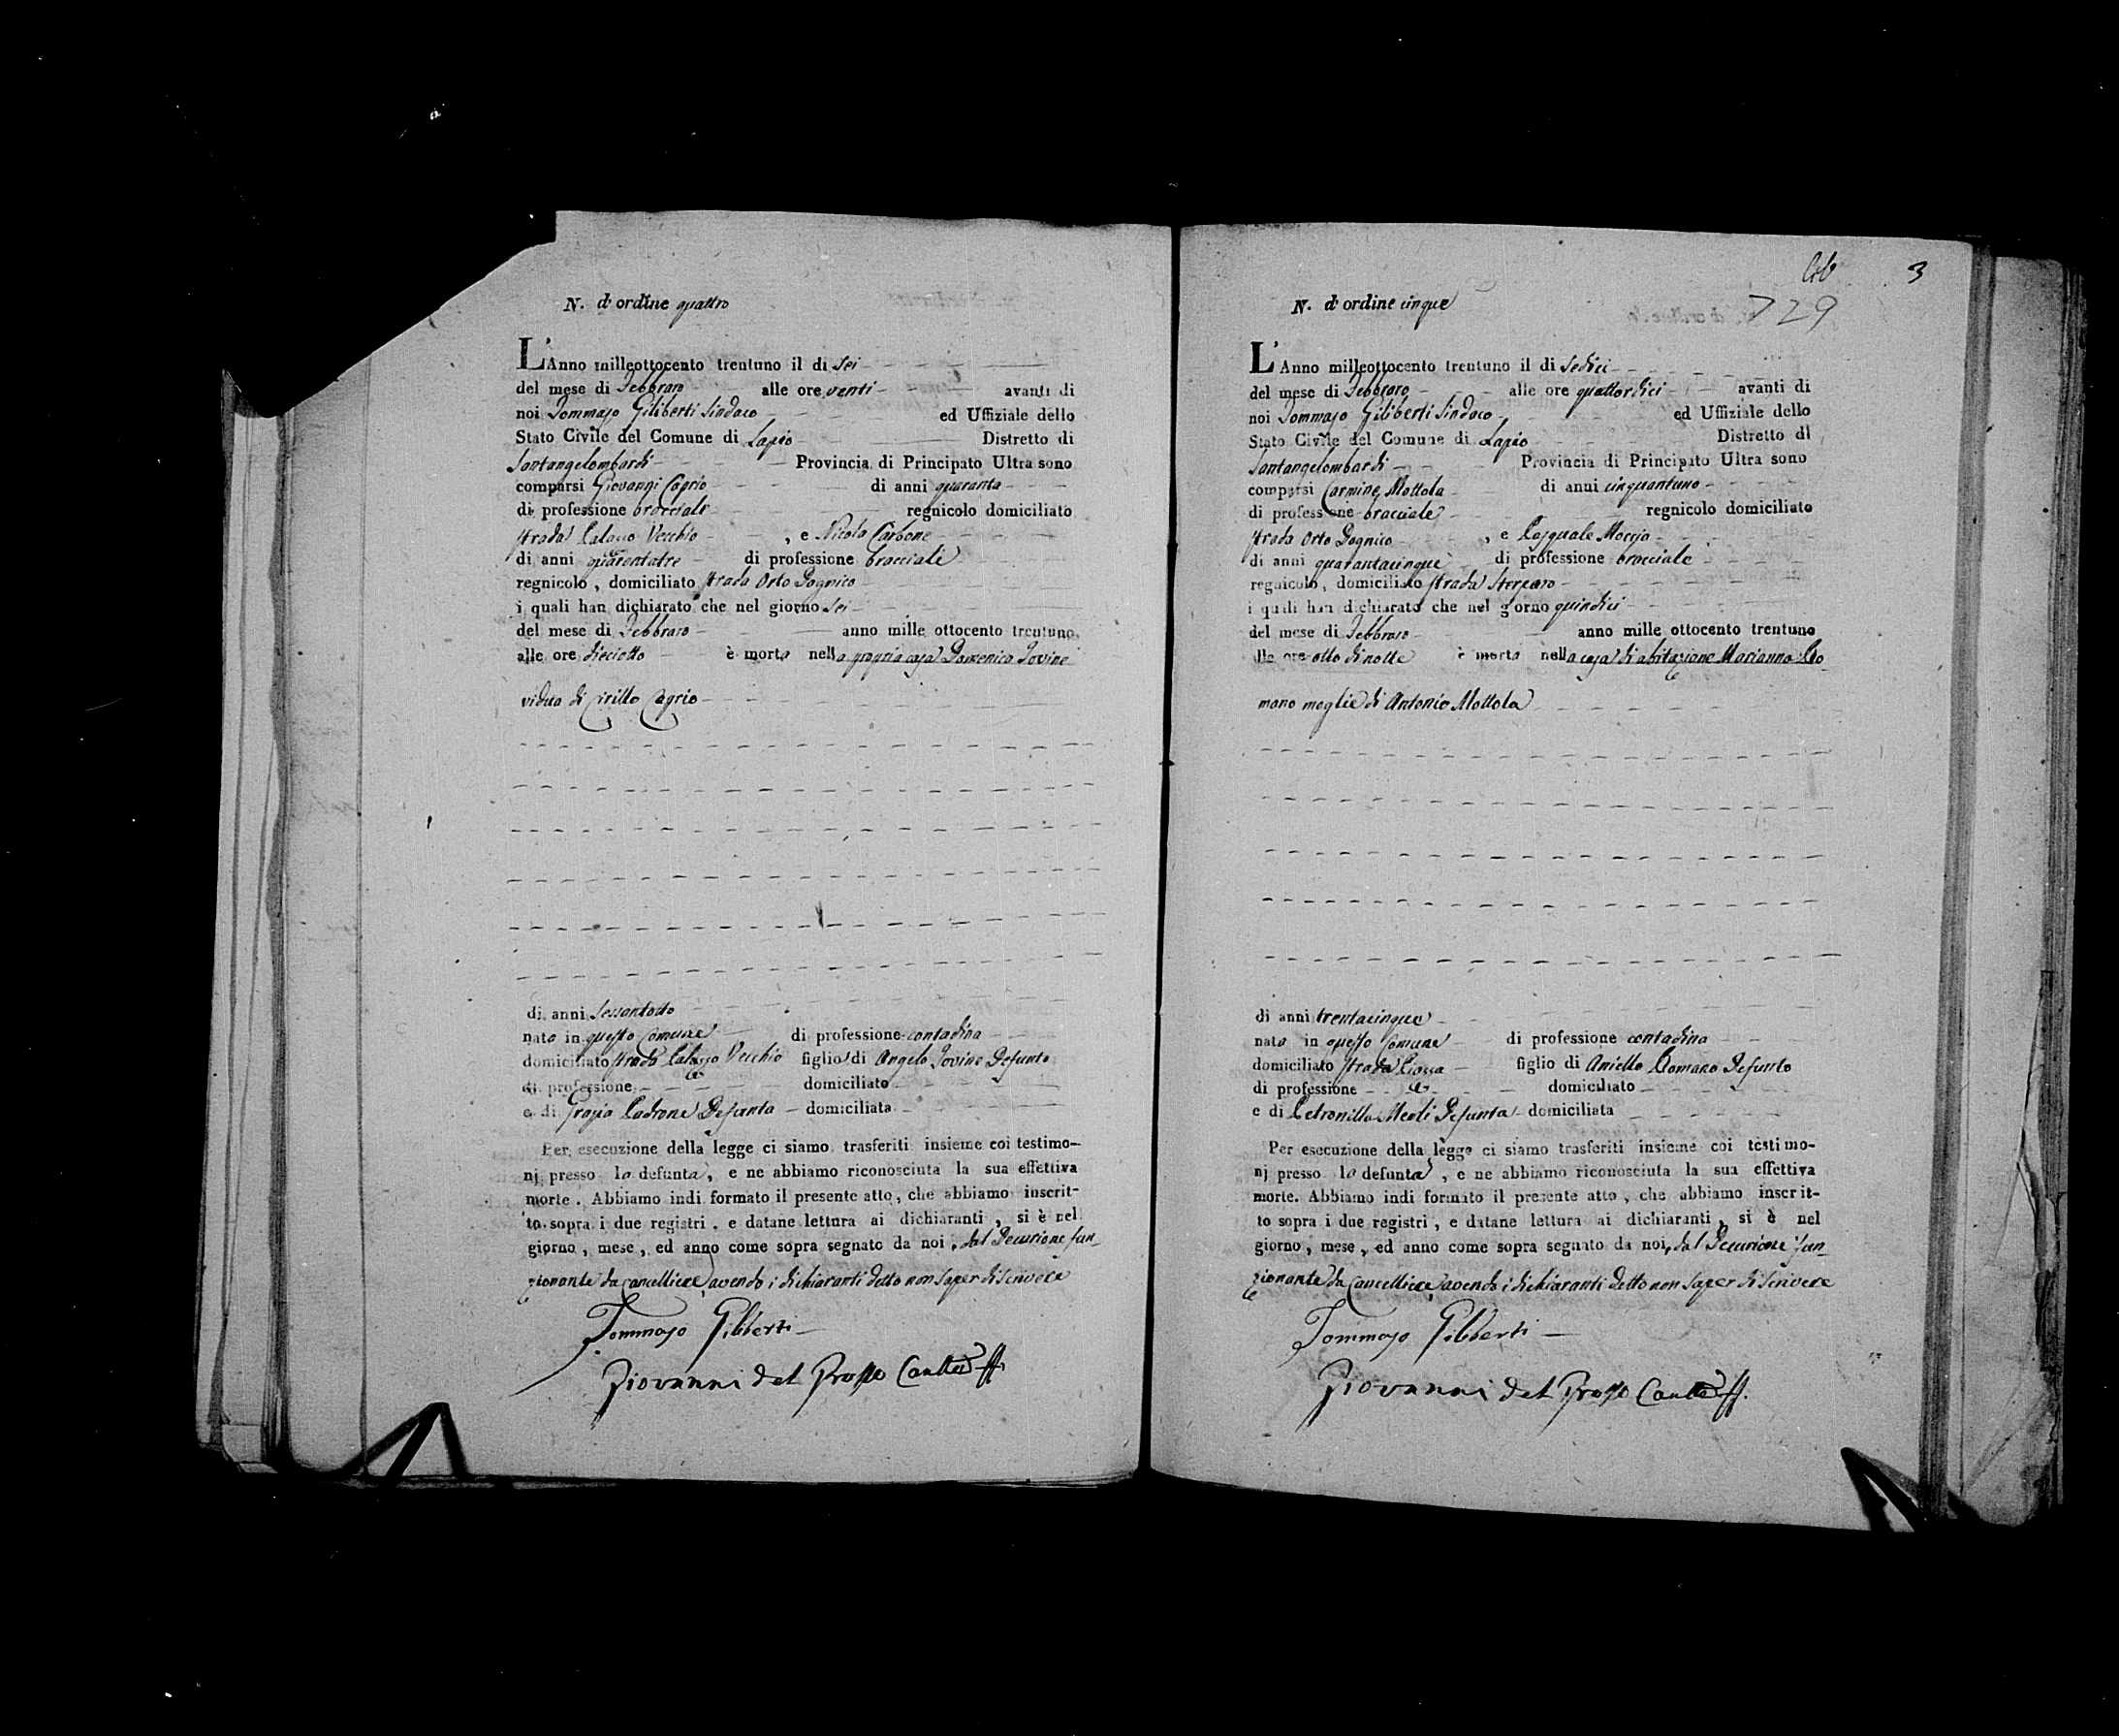 N. d'ordine quattro
L'Anno milleottocento trentuno il di sei
del mese di Febbraro alle ore venti avanti di
noi Tommaso Giliberti Sindaco ed Uffiziale dello
Stato Civile del Comune di Lapio Distretto di
Santangelombardi Provincia di Principato Ultra sono
comparsi Giovanni Caprio di anni quaranta
di professione bracciale regnicolo domiciliato
strada Palazzo Vecchio , e Nicola Carbone
di anni quarantatre di professione bracciale
regnicolo , domiciliato strada Orto
i quali han dichiarato che nel giorno sei
del mese di Febbraro anno mille ottocento trentuno
alle ore dieciotto è morta nella propria casa Domenica Iovine
vidua di Cirillo Caprio
di anni sessantotto
nata in questo Comune di professione contadina
domiciliato strada Palazzo Vecchio figlia di Angelo Iovine Defunto
di professione domiciliato
e di Grazia Padrone Defunta domiciliata
Per esecuzione della legge ci siamo trasferiti insieme coi testimo-
nj presso la defunta, e ne abbiamo riconosciuta la sua effettiva
morte. Abbiamo indi formato il presente atto, che abbiamo inscrit-
to sopra i due registri, e datane lettura ai dichiaranti, si è nel
giorno, mese, ed anno come sopra segnato da noi, dal Decurione fun_
zionante da Cancelliere avendo i dichiaranti detto non saper di scrivere
Tommaso Giliberti
Giovanni del Grosso
Lib 3
729
N. d'ordine cinque
L'Anno milleottocento trentuno il di sedici
del mese di Febbraro alle ore quattordici avanti di
noi Tommaso Giliberti Sindaco ed Uffiziale dello
Stato Civile del Comune di Lapio Distretto di
Santangelombardi Provincia di Principato Ultra sono
comparsi Carmine Mottola di anni cinquantuno
di professione bracciale regnicolo domiciliato
strada Orto , e Pasquale Moccia
di anni quarantacinque di professione bracciale
regnicolo, domiciliato strada Sterparo
i quali han dichiarato che nel giorno quindici
del mese di Febbraro anno mille ottocento trentuno
alle ore otto di notte è morta nella casa di abitazione Marianna Ro_
mano moglie di Antonio Mottola
di anni trentacinque
nata in questo Comune di professione contadina
domiciliato strada Piazza figlio di Aniello Romano Defunto
di professione domiciliato
e di Petronilla Meoli Defunta domiciliata
Per esecuzione della legge ci siamo trasferiti insieme coi testimo-
nj presso la defunta, e ne abbiamo riconosciuta la sua effettiva
morte. Abbiamo indi formato il presente atto, che abbiamo inscrit-
to sopra i due registri, e datane lettura ai dichiaranti, si è nel
giorno, mese, ed anno come sopra segnato da noi, dal Decurione fun_
zionante da Cancelliere avendo i dichiaranti detto non saper di scrivere
Tommaso Giliberti
Giovanni del Grosso